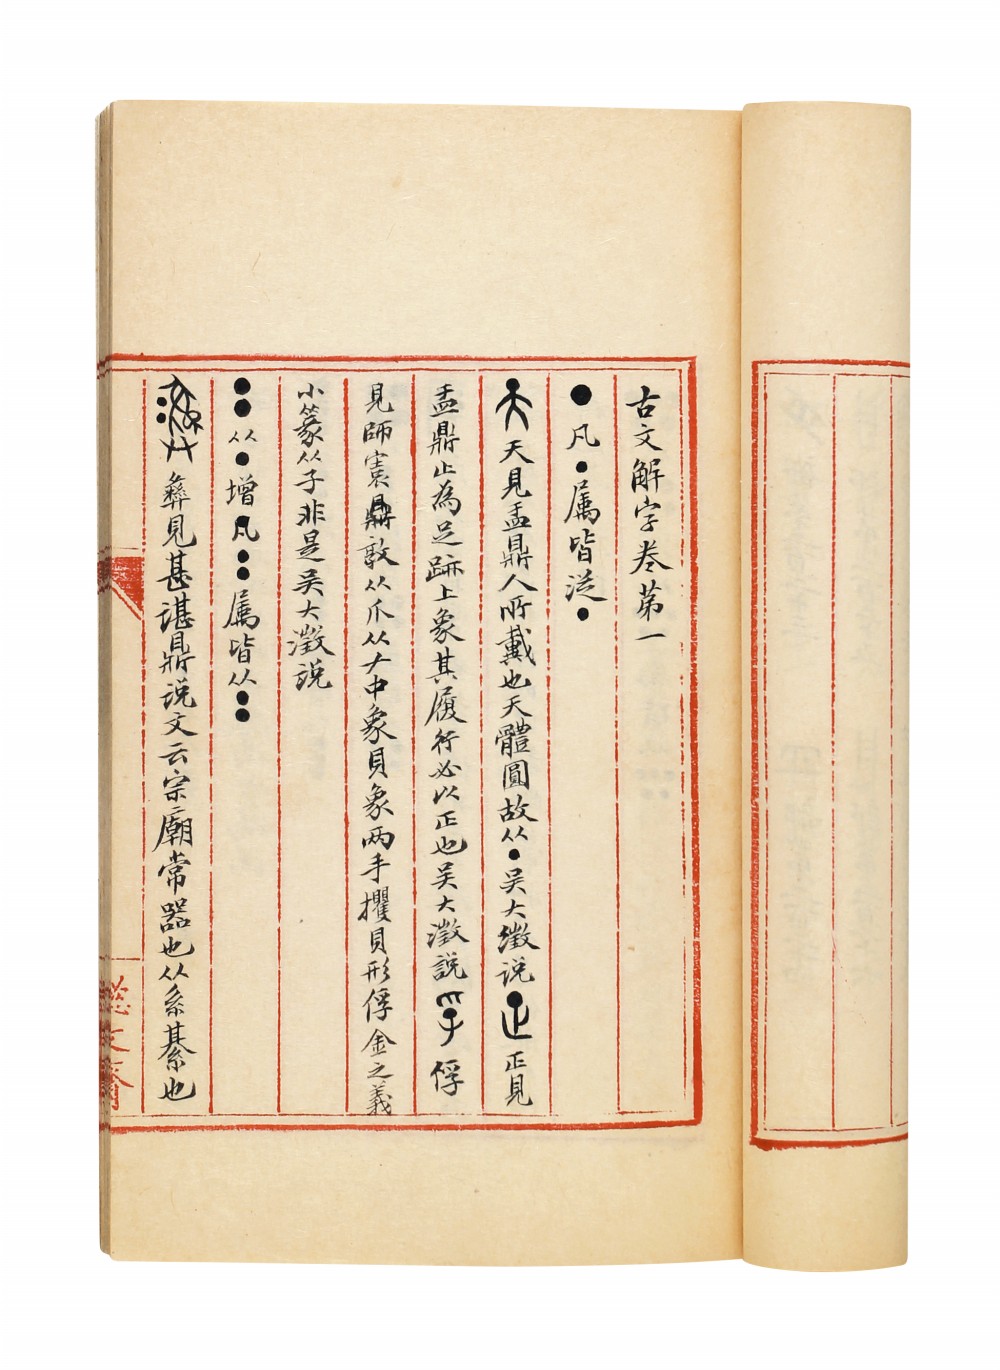 古文解字卷第一
● 凡●属皆从●
天見盂鼎人所戴也天體圓故从●吴大澂说 正見
盂鼎止為足跡上象其履行必以正也吴大澂説 俘
見師寰鼎敦从爪从𠂇中象貝象兩手攫貝形俘金之義
小篆从子非是吴大澂説
●● 从●增凡●●属皆从●●
彝見甚諶鼎说文云宗廟常器也从糸綦也
文齋